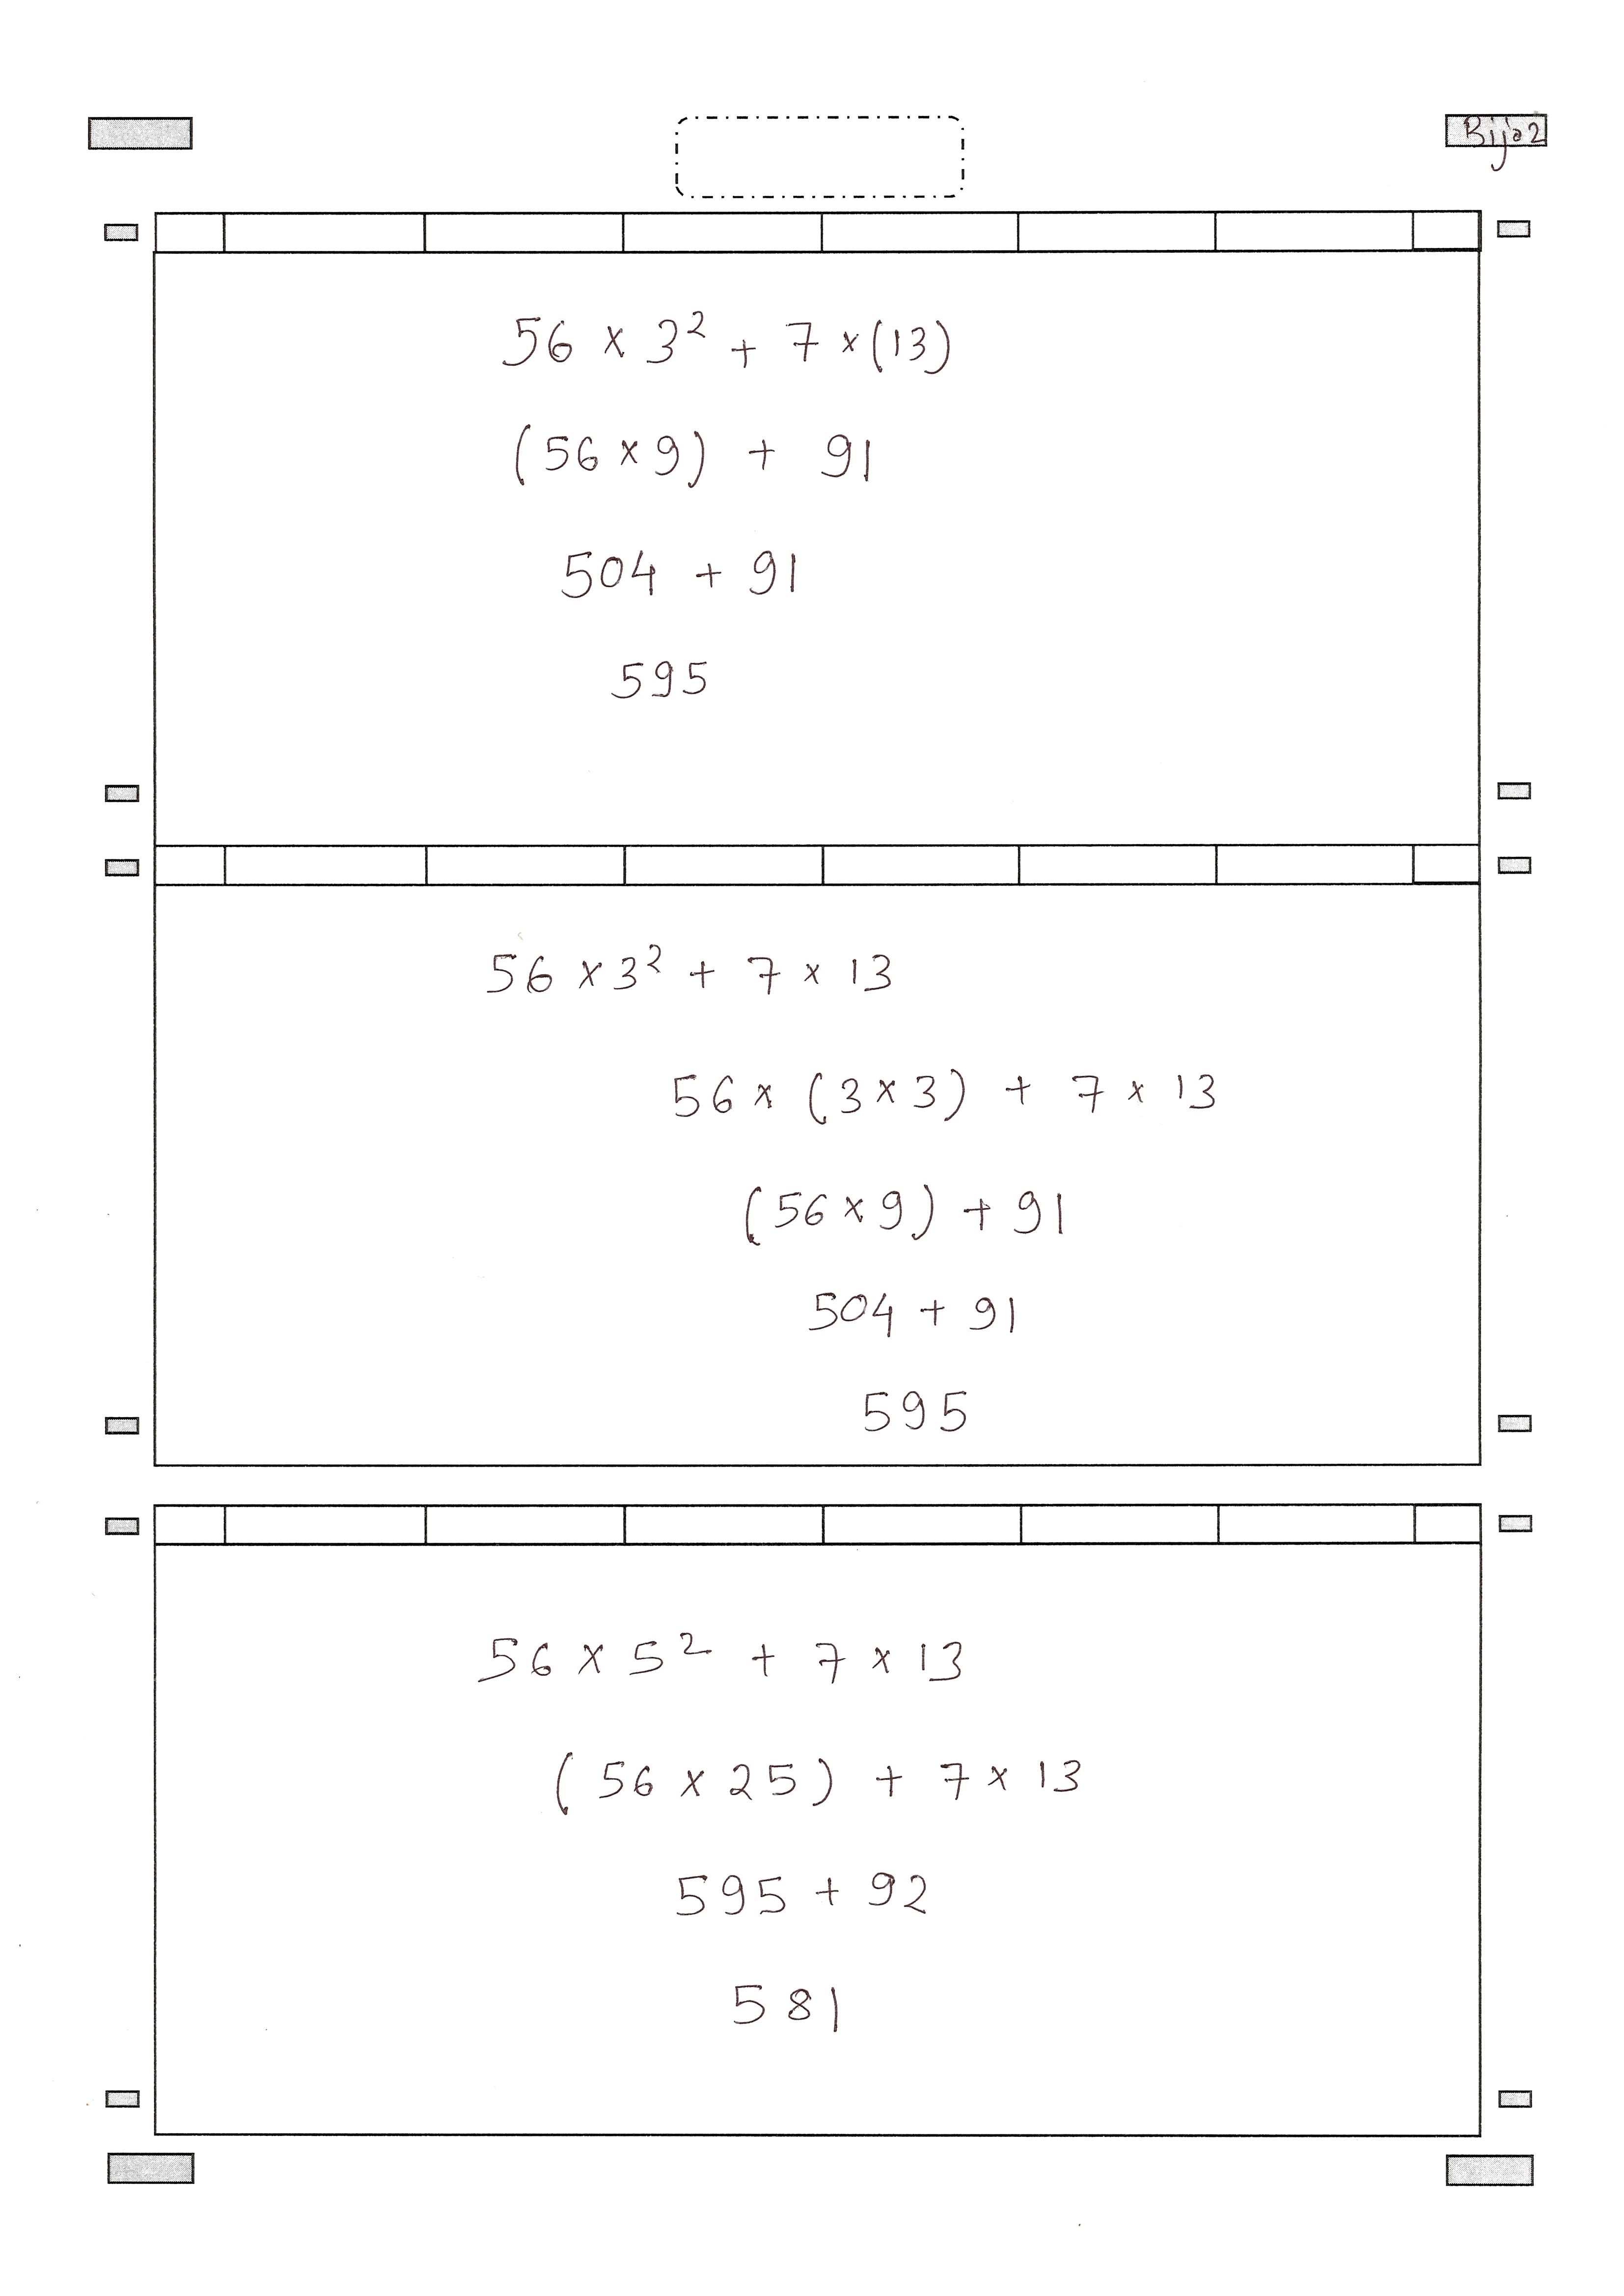 Bija2
56 × 3² + 7 × (13)
(56 × 9) + 91
504 + 91
595
56 × 3² + 7 × 13
56 × (3 × 3) + 7 × 13
(56 × 9) + 91
504 + 91
595
56 × 5² + 7 × 13
(56 × 25) + 7 × 13
595 + 92
581